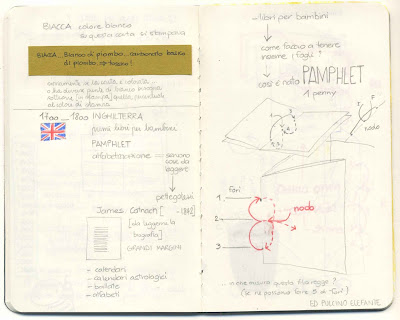 BIACCA colore bianco
su questa carta si stampava
BIACCA... Bianco di piombo... carbonato basico
di piombo... tossico!
1700 ___ 1800 INGHILTERRA
primi libri per bambini
PAMPHLET
alfabetizzazione = servono
cose da
leggere
pettegolezzi
James Catnach [ -1842]
[da leggere la
biografia]
GRANDI MARGINI
+ calendari
- calendari astrologici
- ballate
- alfabeti
- libri per bambini
come faccio a tenere
insieme i fogli?
così è nato PAMPHLET
1 penny
nodo
fori
1
2
3
nodo
in che misura questa
(se ne possono fare 5 di fori)
ED. PULCINO ELEFANTE